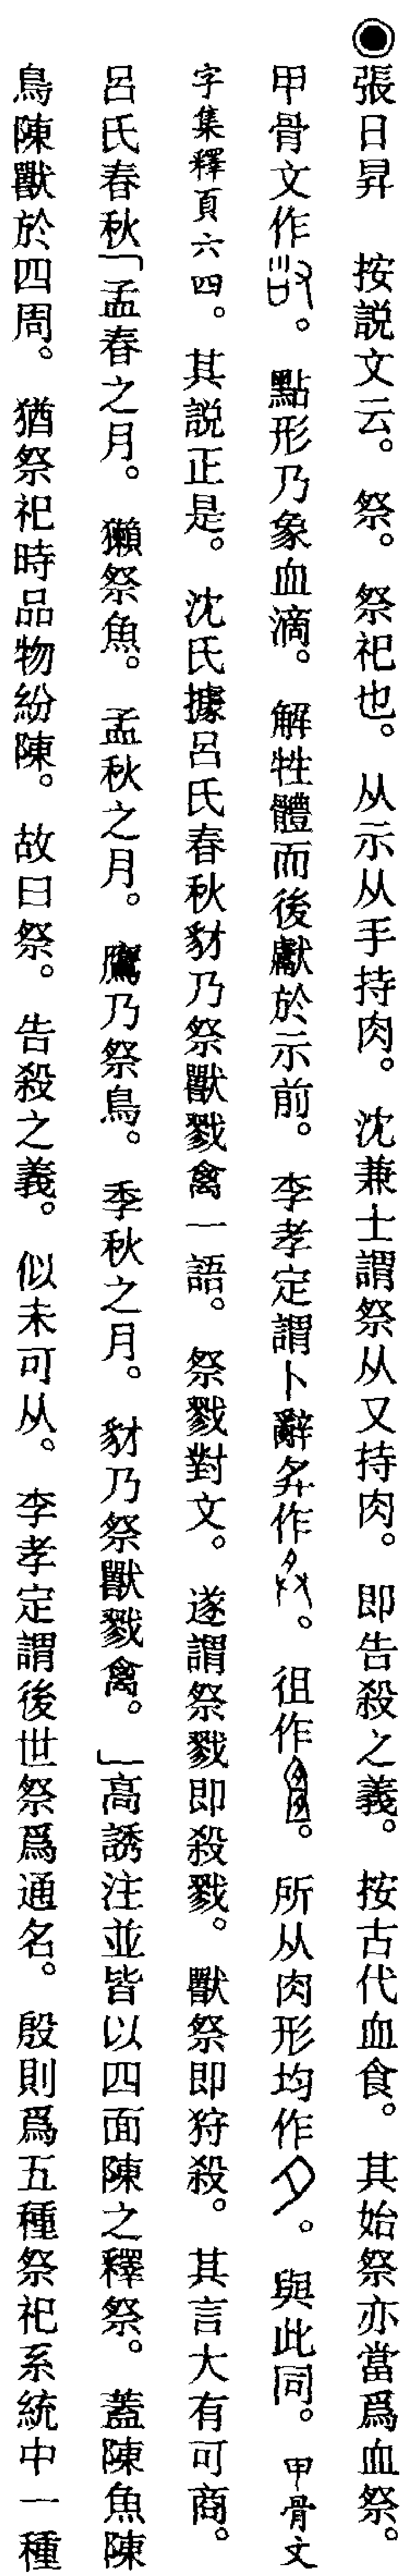 ◉張日昇　按説文云。祭。祭祀也。从示从手持肉。沈兼士謂祭从又持肉。即告殺之義。按古代血食。其始祭亦當爲血祭。
甲骨文作。點形乃象血滴。解牲體而後獻於示前。李孝定謂卜辭作。徂作。所从肉形均作。與此同。甲骨文
字集釋頁六四。其説正是。沈氏據呂氏春秋豺乃祭獸戮禽一語。祭戮對文。遂謂祭戮即殺戮。獸祭即狩殺。其言大有可商。
呂氏春秋「孟春之月。獺祭魚。孟秋之月。鷹乃祭鳥。季秋之月。豺乃祭獸戮禽。」高誘注並皆以四面陳之釋祭。蓋陳魚陳
鳥陳獸於四周。猶祭祀時品物紛陳。故曰祭。告殺之義。似未可从。李孝定謂後世祭爲通名。殷則爲五種祭祀系統中一種